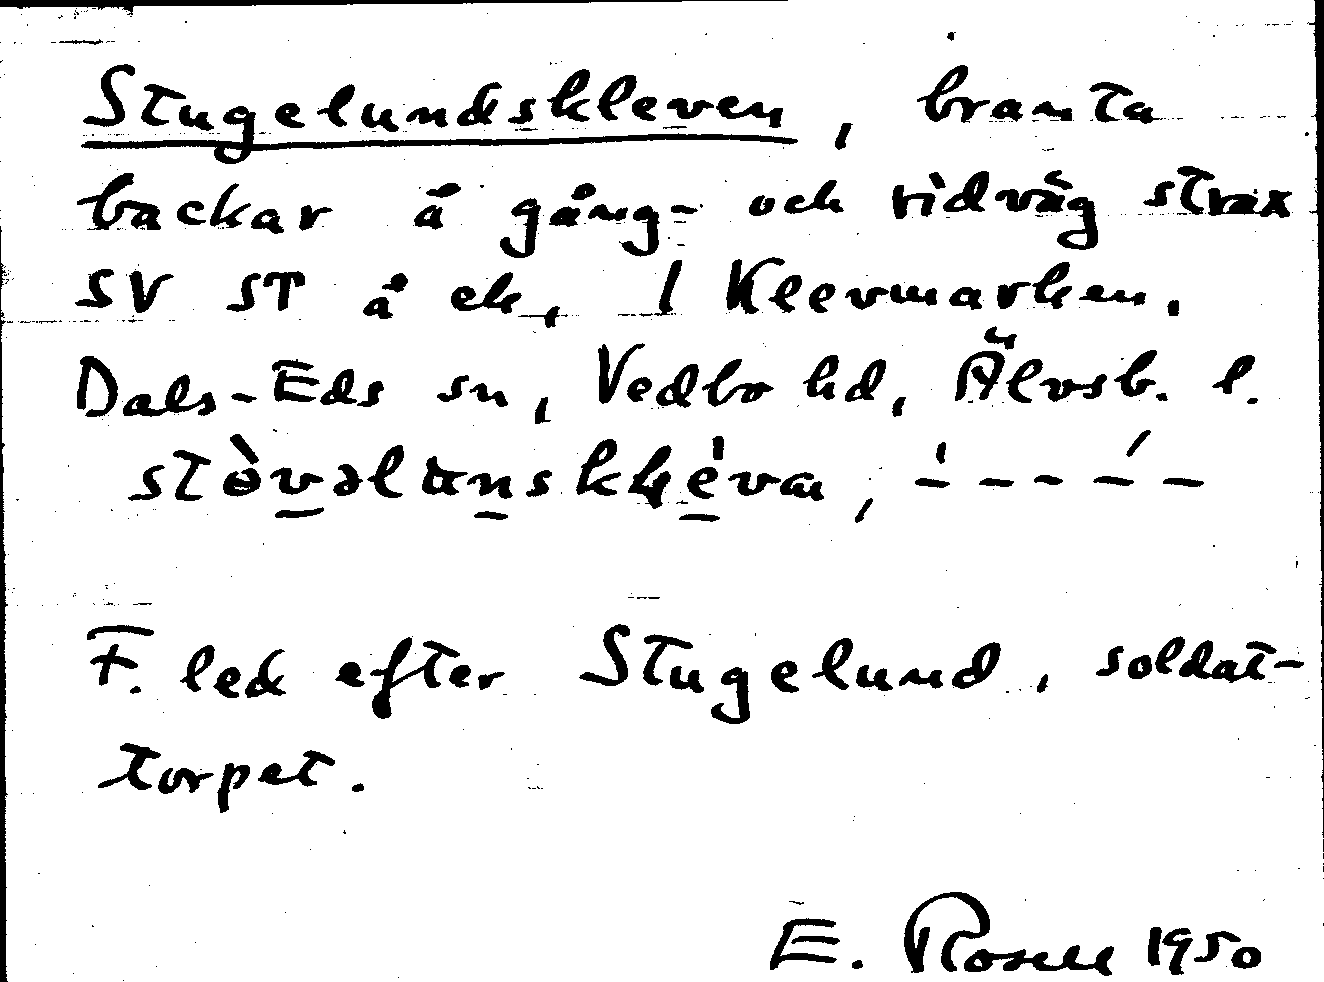 Stugelundskleven, branta
backar å gång- och ridväg strax
SV ST å ek, 1 Klevmarken.
Dals-Eds sn, Vedbo hd, Älvsb. l.
F. led efter Stugelund, soldat-
torpet.
E. Rosell 1950